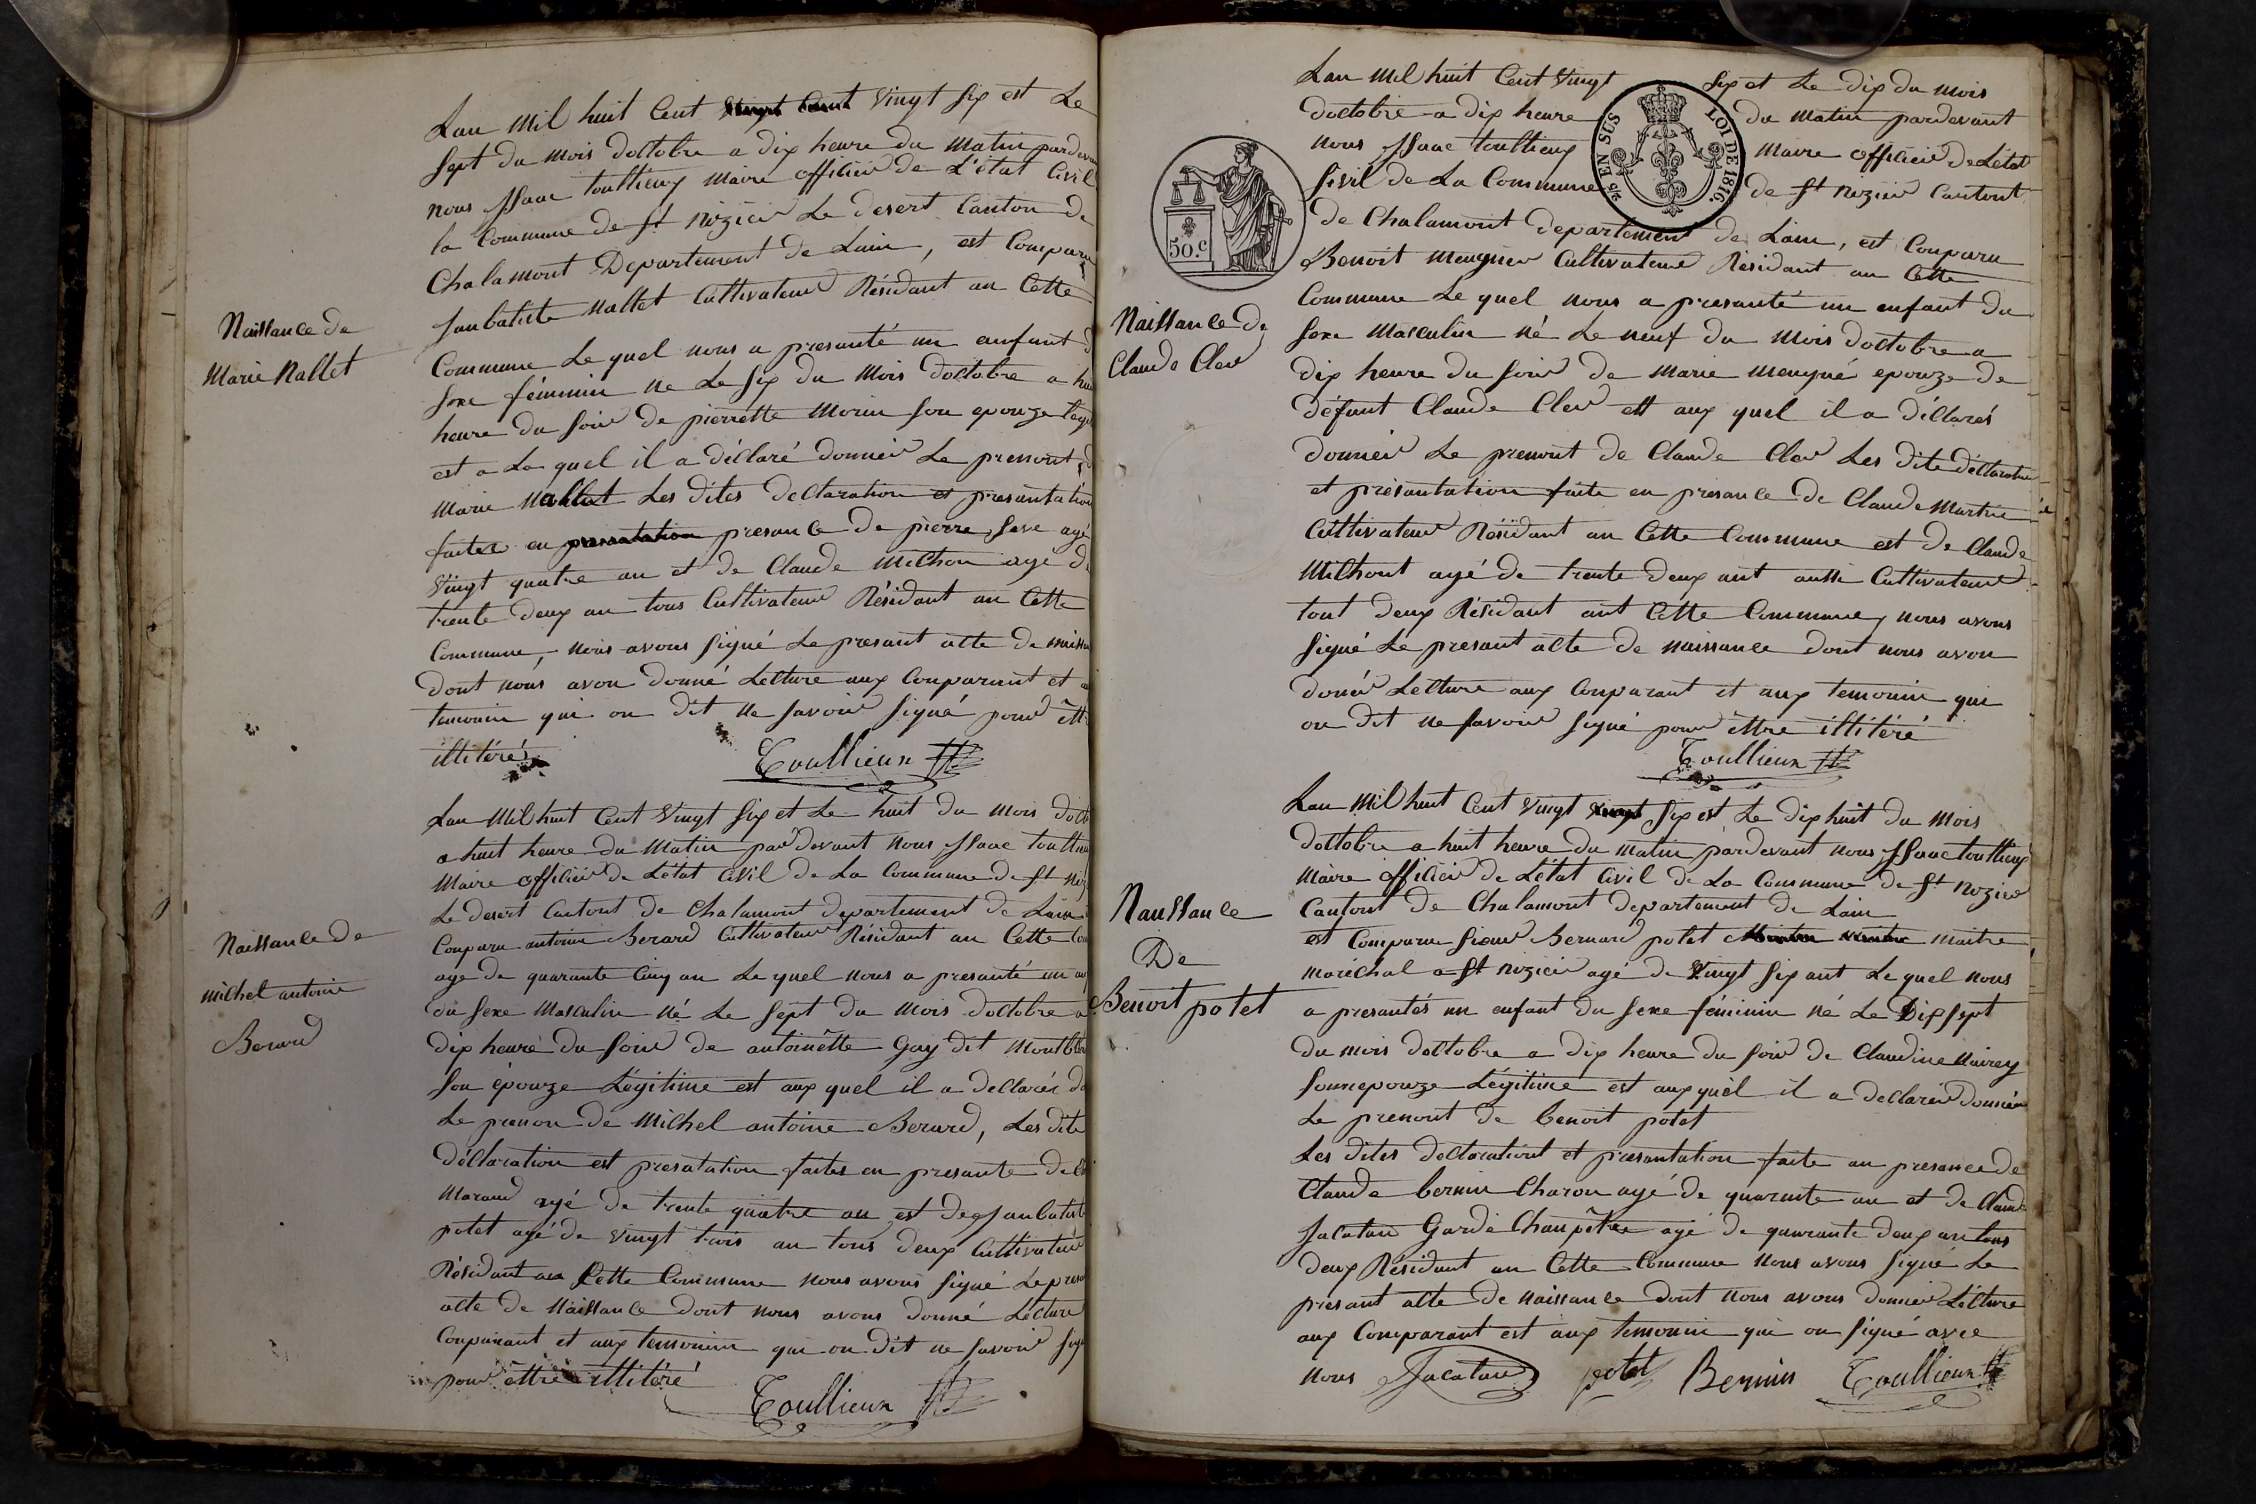 Lan mil huit Cent vingt Six est Le
Sept du mois doctobre a dix heure du matin pardevan
nous jsaac toullieux maire officier de L'état Civil
la Commune de St nizier Le desert Canton de
Chalamont Departement de Lain, est Comparu
janbatiste Nallet Cultivateur Résidant an Cette
Naissance de
Marie Nallet
Commune Le quel nous a presanté un anfant d
Sexe féminin né Le Six du mois doctobre a hui
heure du Soir de pierrette morin Son epouze legi
est a La quel il a déclaré donner Le prenont d
marie Nallet Les dites declaration et presantation
faites en presance de pierre Seve agé
vingt quatre an et de Claude michon agé de
trente deux an tous Cultivateur Résidant an Cette
Commune, nous avons Signé Le presant acte de naissan
dont nous avon donné Lecture aux Conparant et a
temouin qui on dit ne Savoir Signé pour ettr
illitéré
Toullieux
Lan mil huit Cent vingt Six et Le huit du mois docto
a huit heure du matin par devant nous jsaac toullieu
maire officier de L'état Civil de La Commune de St niz
Le desert Cantont de Chalamont departement de Lain
Conparu antoine Berard Cultivateur Résidant an Cette Co
Naissance de
michel antoine
Berard
age de quarante Cinq an Le quel nous a presanté un an
du Sexe masculin né Le Sept du mois doctobre a
dix heure du Soir de antoinette Gay dit montb
Son épouze Légitime est aux quel il a declarér do
Le prenon de michel antoine Berard, Les dite
déclaration est presatation faites en presante de
Marand agé de trente quatre an est de janbatist
potet agé de vingt trois an tous deux Cultivateur
Résidant an Cette Commune nous avons Signé Le presa
acte de Naissance dont nous avons donné Lecture
Conparant et aux temouin qui on dit ne Savoir Sig
pour ettre illitéré
Toullieux
Lan mil huit Cent vingt Six et Le dix du mois
doctobre a dix heure du matin pardevant
nous jsaac toullieux maire officier de L'état
Sivil de La Commune de St nizier Cantont
de Chalamont departement de Lain, est Conparu
2/5 EN SUS LOI DE 1816.
50.c
Benoit meugnier Cultivateur Résidant an Cette
Commune Le quel nous a presanté un enfant du
Naissance de
Claude Cler
Sexe masculin né Le neuf du mois doctobre a
dix heure du Soir de marie meugné epouze de
défunt Claude Cler ett aux quel il a déclarés
donner Le prenont de Claude Cler Les dite déclaration
et présantation faite en presance de Claude Martin
Cultivateur Résidant an Cette Commune est de Claude
Milhont agé de trente deux ant aussi Cultivateur
tout deux Résidant ant Cette Commune, nous avons
Signé Le presant acte de naissance dont nous avon
donér Lecture aux Conparant et aux temouin qui
on dit ne Savoir Signé pour ettre illitéré
Toullieux
Lan mil huit Cent vingt Six est Le dix huit du mois
doctobre a huit heure du matin pardevant nous jsaac toullieux
maire officier de L'état Civil de La Commune de St nizier
Cantont de Chalamont departement de Lain
est Comparu Sieur Bernard potet maitre
Naissance
De
Benoit potet
maréchal a St nizier agé de vingt Six ant Le quel nous
a presantés un enfant du Sexe féminin né Le Dix Sept
du mois doctobre a dix heure du Soir de Claudine
Sonnepouze Légitime est aux quèl il a declarér donner
Le prenont de benoit potet
Les dites declarationt et presantation faite an presance de
Claude bernin Charon agé de quarante an et de Claude
Jacatau Garde Chanpêtre agé de quarante deux an tous
deux Résidant an Cette Commune nous avons Signé Le
presant acte de naissance dont nous avons donner Lecture
aux Comparant est aux temouin qui on Signé avec
nous Jacatau potet Bernin Toullieux